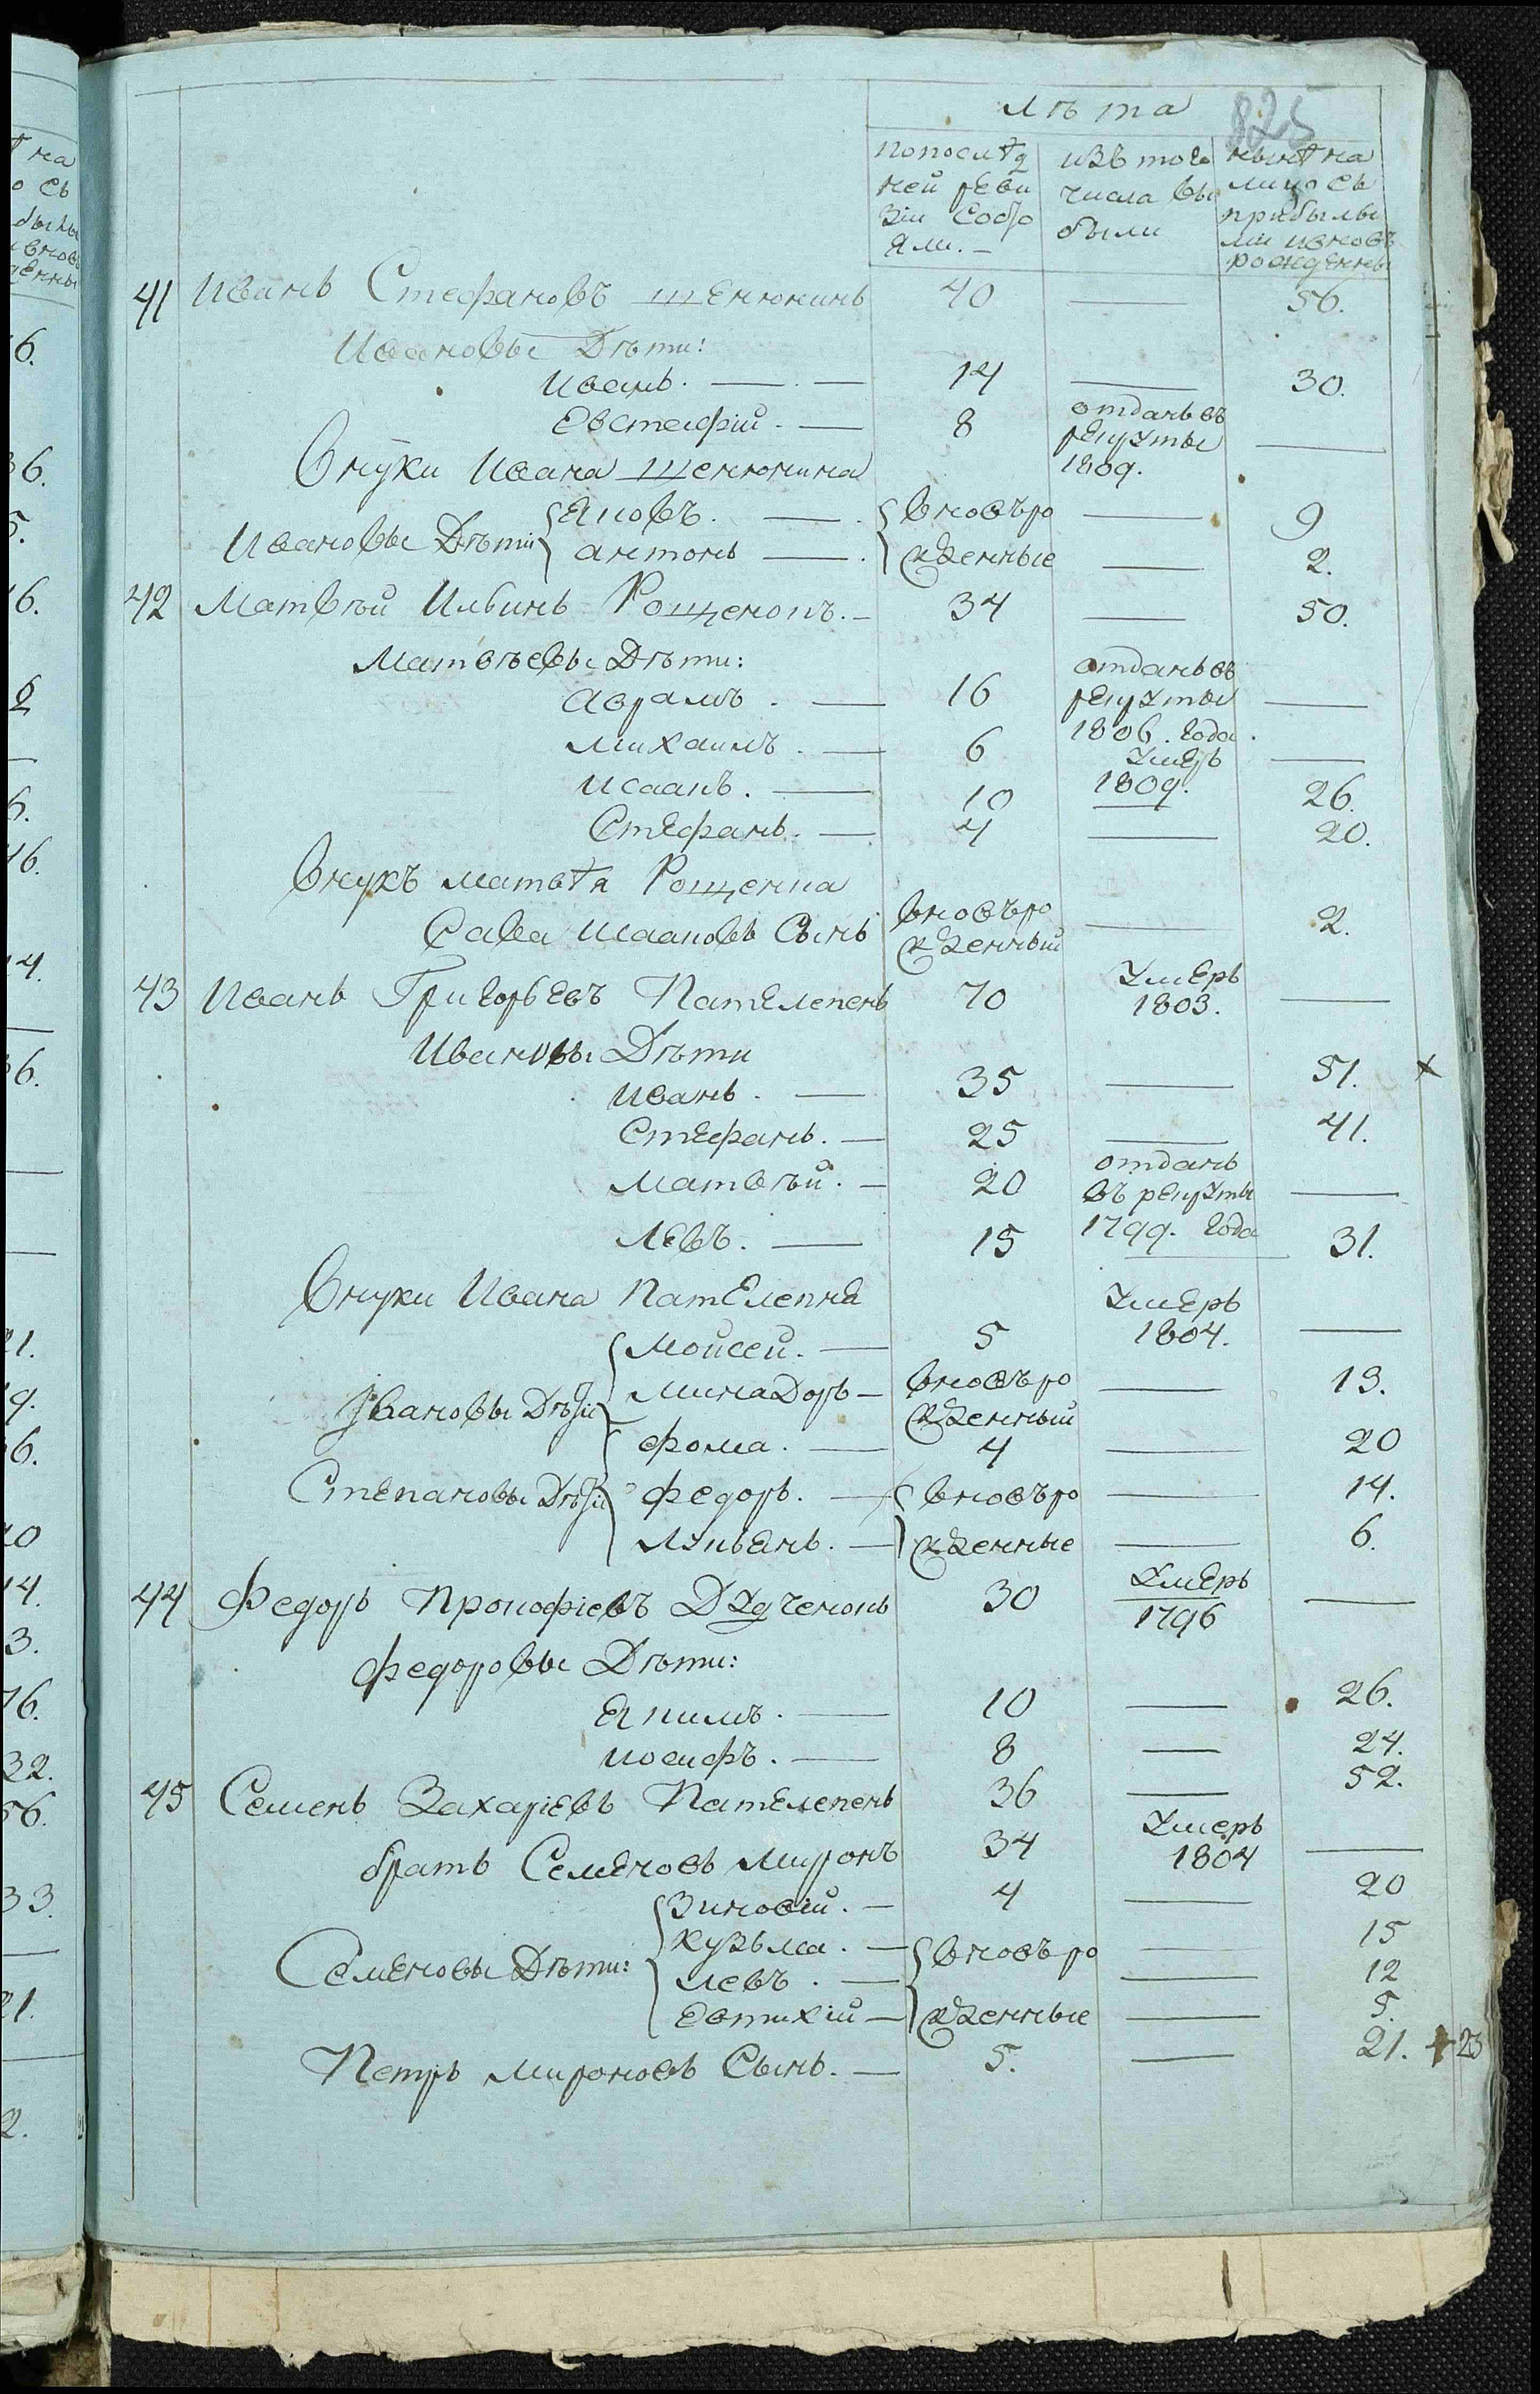 лѣта
825
по послѣд изъ того нынѣ на
ней реви числа вы лицо съ
зіи состо были прибылы
яли. — ми и вновь
рожденны
41 Иванъ Стефановъ Шенюкинъ 40 — 56.
Ивановы Дѣти:
Иванъ. — 14 — 30.
Евстафій. — 8 отданъ въ
рекруты —
Внуки Ивана Шенюкина 1809.
Ивановы Дѣти { Яковъ. — { вновь ро — 9
Антонъ — } жденные — 2.
42 Матвѣй Ильинъ Рощенокъ. — 34 — 50.
Матвѣевы Дѣти: отданъ въ
Аврамъ. — 16 рекруты —
1806. года.
Михаилъ. — 6 умеръ —
1809.
Исаакъ. — 10 — 26.
Стефанъ. — 4 — 20.
Внукъ Матвѣя Рощенка
Сава Исааковъ Сынъ вновь ро — 2.
жденный
43 Иванъ Григорьевъ Пателепень 70 умеръ —
1803.
Ивановы Дѣти
Иванъ. — 35 — 51. x
Стефанъ. — 25 — 41.
Матвѣй. — 20 отданъ
въ рекруты —
1799. года
Левъ. — 15 — 31.
Внуки Ивана Пателепня умеръ
{ Мойсей. — 5 1804. —
Ивановы Дѣти Минадоръ — вновь ро — 13.
жденный
Фома. — 4 — 20
Степановы Дѣти } Федоръ. — { вновь ро — 14.
Лукьянъ. — } жденные — 6.
44 Федоръ Прокофіевъ Дудченокъ 30 умеръ —
1796
Федоровы Дѣти:
Якимъ. — 10 — 26.
Иосифъ. — 8 — 24.
45 Семенъ Захаріевъ Пателепень 36 — 52.
братъ Семеновъ Миронъ 34 умеръ —
1804
{ Зиновій. — 4 — 20
Семеновы Дѣти: Кузьма. — { вновь ро — 15
Левъ. — — 12
Евтихій — } жденные — 5.
Петръ Мироновъ Сынъ. — 5. — 21. + 23